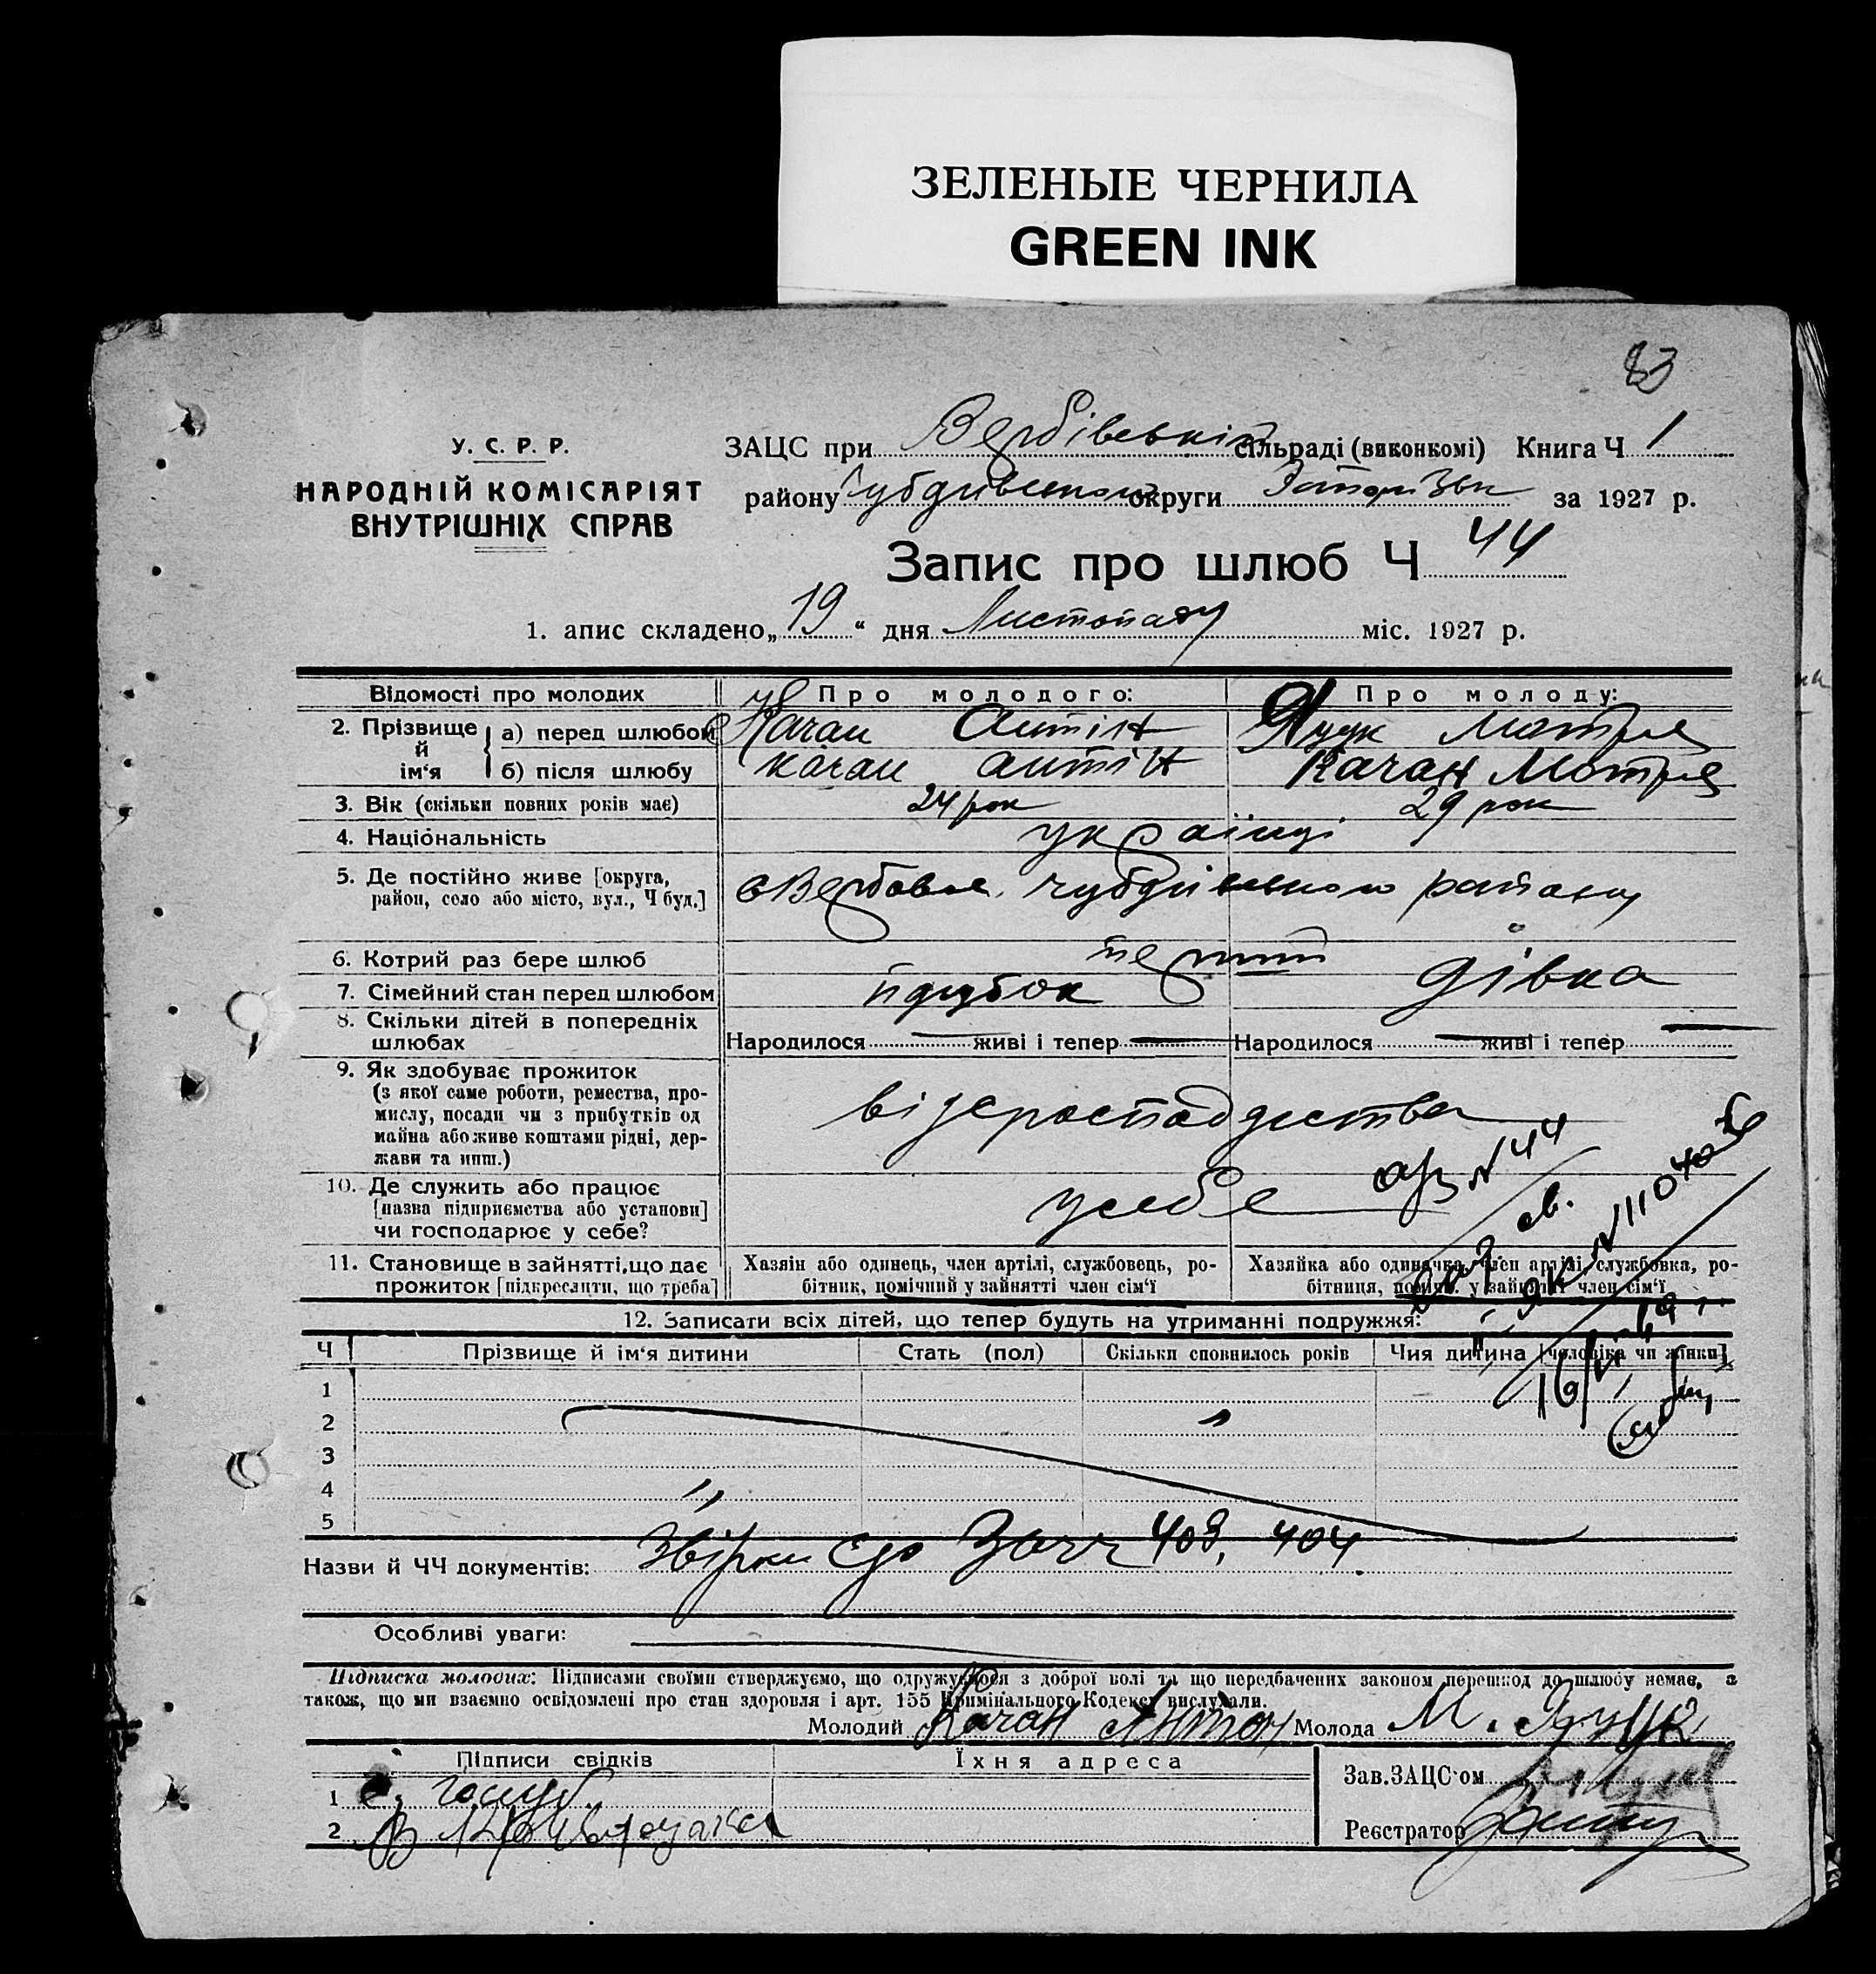 ЗЕЛЕНЫЕ ЧЕРНИЛА
GREEN INK
83
У. С. Р. Р.
НАРОДНІЙ КОМІСАРІЯТ
ВНУТРІШНІХ СПРАВ
ЗАЦС при Вербівській сільраді (виконкомі) Книга Ч 1
району округи за 1927 р.
Запис про шлюб Ч 44
1. апис складено „19“ дня Листопаду міс. 1927 р.
Відомості про молодих Про молодого: Про молоду:
2. Прізвище й ім‘я а) перед шлюбом Качан Антін Яцук Мотря
б) після шлюбу Качан Антін Качан Мотря
3. Вік (скільки повних років має) 24 рок 29 рок
4. Національність українці
5. Де постійно живе [округа, район, село або місто, вул., Ч буд.] району
6. Котрий раз бере шлюб перший
7. Сімейний стан перед шлюбом парубок дівка
8. Скільки дітей в попередніх шлюбах Народилося — живі і тепер — Народилося — живі і тепер —
9. Як здобуває прожиток
(з якої саме роботи, ремества, про-
мислу, посади чи з прибутків од
майна або живе коштами рідні, дер-
жави та инш.)
10. Де служить або працює
[назва підприємства або установи]
чи господарює у себе? у себе
11. Становище в зайнятті, що дає
прожиток [підкреслити, що треба]
Хазяін або одинець, член артілі, службовець, ро-
бітник, помічний у зайнятті член сім‘ї
Хазяйка або одиначка, член артілі, службовка, ро-
бітниця, помічн. у зайнятті член сім‘ї
№ 44
12. Записати всіх дітей, що тепер будуть на утриманні подружжя:
Ч Прізвище й ім‘я дитини Стать (пол) Скільки сповнилось років Чия дитина [чоловіка чи жінки]
1
2
3
4
5
Назви й ЧЧ документів: 403, 404
Особливі уваги:
Підписка молодих: Підписами своїми стверджуємо, що одружуємося з доброї волі та що передбачених законом перешкод до шлюбу немає, а
також, що ми взаємно освідомлені про стан здоровля і арт. 155 Кримінального Кодексу вислухали.
Молодий Качан Антон Молода М. Яцук
Підписи свідків Їхня адреса
1
2
Зав. ЗАЦС‘ом
Реєстратор